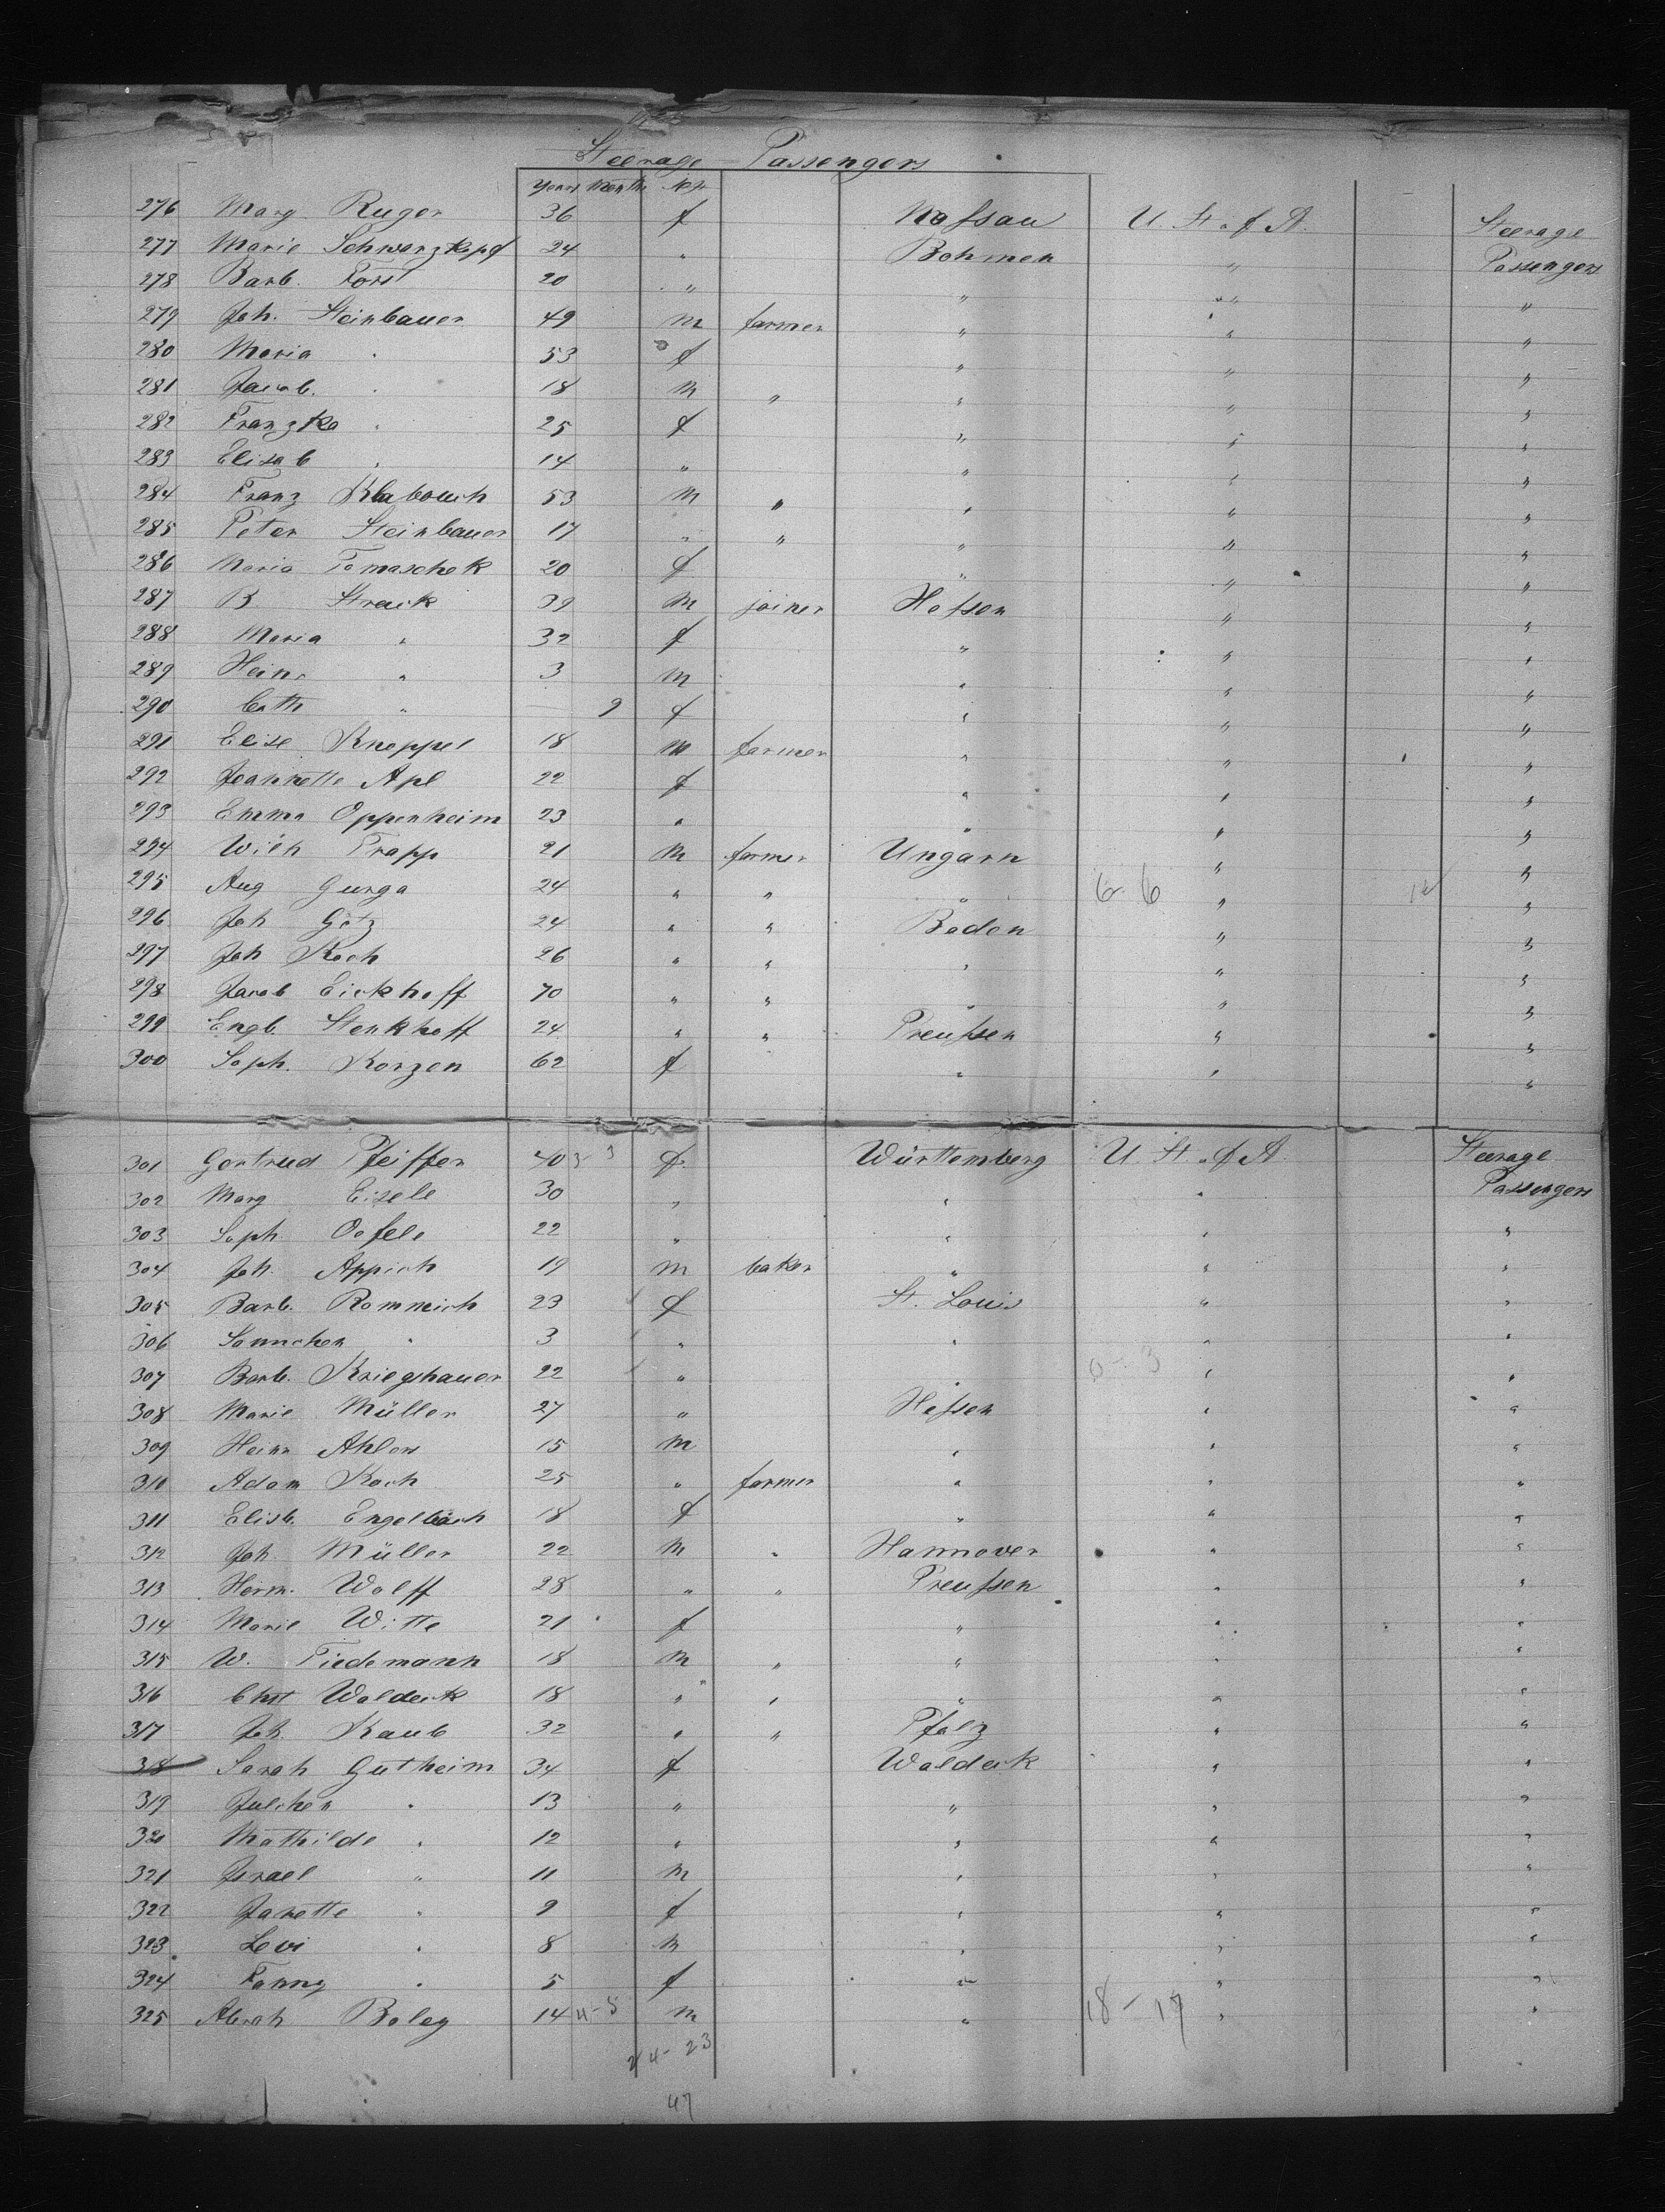 Steerage Passengers
Years Months Sex
276 Marg. Ruger 36 f Nassau U. St. of A. Steerage
277 Marie Schwarzkopf 24 " Bohmen " Passengers
278 Barb. Forst 20 " " " "
279 Joh. Steinbauer 49 m farmer " " "
280 Maria " 53 f " " "
281 Jacob. " 18 m " " " "
282 Franzka " 25 f " " "
283 Elisab " 14 " " " "
284 Franz Klabouch 53 m " " " "
285 Peter Steinbauer 17 " " " " "
286 Maria Tomaschek 20 f " " "
287 B. Strack 39 m joiner Hessen " "
288 Maria " 32 f " " "
289 Heinr " 3 m " " "
290 Cath " 9 f " " "
291 Elise Knoppel 18 m farmer " " "
292 Jeannette Apl 22 f " " "
293 Emma Oppenheim 23 " " " "
294 Wilh Trapp 21 m farmer Ungarn " "
295 Aug Gurga 24 " " " 6-6 " "
296 Joh Götz 24 " " Baden " "
297 Joh Koch 26 " " " " "
298 Jacob Eickhoff 70 " " " " "
299 Engb. Stenkhoff 24 " " Preussen " "
300 Soph. Korzen 62 f " " "
301 Gertrud Pfeiffer 40 3 3 f Württemberg U. St. of A. Steerage
302 Marg Eisele 30 " " " Passengers
303 Soph. Oefele 22 " " " "
304 Joh. Appich 19 m baker " " "
305 Barb. Romneich 23 f St. Louis " "
306 Sannchen " 3 " " " "
307 Barb. Krieghauer 22 " " 0-3 " "
308 Marie Müller 27 " Hessen " "
309 Heinr Ahlers 15 m " " "
310 Adam Koch 25 " farmer " " "
311 Elisb. Engelbach 18 f " " "
312 Joh. Müller 22 m " Hannover " "
313 Herm. Wolff 28 " " Preussen " "
314 Marie Witte 21 f " " "
315 W. Tiedemann 18 m " " " "
316 Chst Waldeck 18 " " " " "
317 Joh. Kaub 32 " " Pfalz " "
318 Sarah Gutheim 34 f Waldeck " "
319 Julchen " 13 " " " "
320 Mathilde " 12 " " " "
321 Israel " 11 m " " "
322 Janette " 9 f " " "
323 Levi " 8 m " " "
324 Fanny " 5 f " " "
325 Abrah Boley 14 4-5 m " 18-17 " "
24-23
47